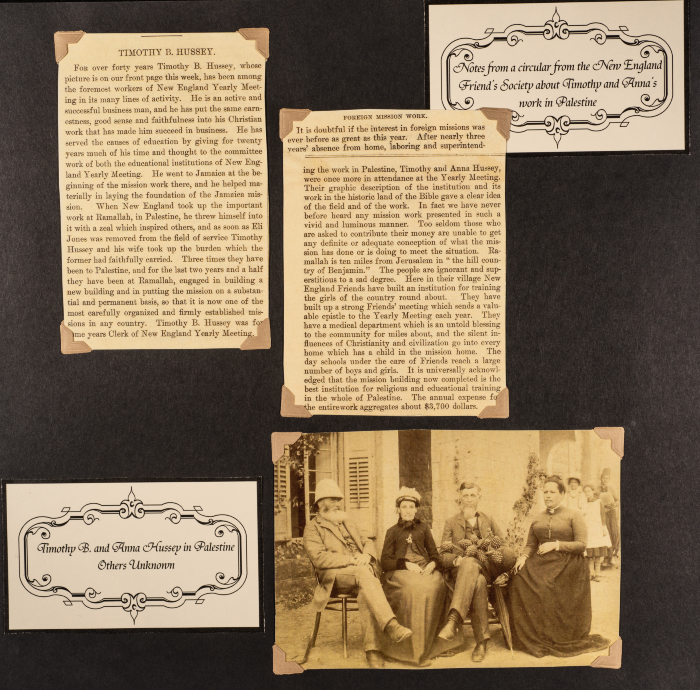 TIMOTHY B. HUSSEY.
For over forty years Timothy B. Hussey, whose
picture is on our front page this week, has been among
the foremost workers of New England Yearly Meet-
ing in its many lines of activity. He is an active and
successful business man, and he has put the same earn-
estness, good sense and faithfulness into his Christian
work that has made him succeed in business. He has
served the causes of education by giving for twenty
years much of his time and thought to the committee
work of both the educational institutions of New Eng-
land Yearly Meeting. He went to Jamaica at the be-
ginning of the mission work there, and he helped ma-
terially in laying the foundation of the Jamaica mis-
sion. When New England took up the important
work at Ramallah, in Palestine, he threw himself into
it with a zeal which inspired others, and as soon as Eli
Jones was removed from the field of service Timothy
Hussey and his wife took up the burden which the
former had faithfully carried. Three times they have
been to Palestine, and for the last two years and a half
they have been at Ramallah, engaged in building a
new building and in putting the mission on a substan-
tial and permanent basis, so that it is now one of the
most carefully organized and firmly established mis-
sions in any country. Timothy B. Hussey was for
some years Clerk of New England Yearly Meeting.
Notes from a circular from the New England
Friend's Society about Timothy and Anna's
work in Palestine
FOREIGN MISSION WORK.
It is doubtful if the interest in foreign missions was
ever before as great as this year. After nearly three
years' absence from home, laboring and superintend-
ing the work in Palestine, Timothy and Anna Hussey,
were once more in attendance at the Yearly Meeting.
Their graphic description of the institution and its
work in the historic land of the Bible gave a clear idea
of the field and of the work. In fact we have never
before heard any mission work presented in such a
vivid and luminous manner. Too seldom those who
are asked to contribute their money are unable to get
any definite or adequate conception of what the mis-
sion has done or is doing to meet the situation. Ra-
mallah is ten miles from Jerusalem in "the hill coun-
try of Benjamin." The people are ignorant and sup-
erstitious to a sad degree. Here in their village New
England Friends have built an institution for training
the girls of the country round about. They have
built up a strong Friends' meeting which sends a valu-
able epistle to the Yearly Meeting each year. They
have a medical department which is an untold blessing
to the community for miles about, and the silent in-
fluences of Christianity and civilization go into every
home which has a child in the mission home. The
day schools under the care of Friends reach a large
number of boys and girls. It is universally acknowl-
edged that the mission building now completed is the
best institution for religious and educational training
in the whole of Palestine. The annual expense fo
the entirework aggregates about $3,700 dollars.
Timothy B. and Anna Hussey in Palestine
Others Unknown